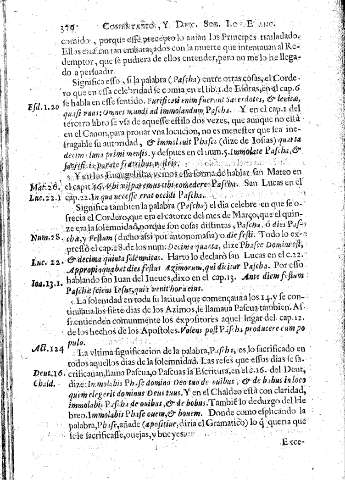 370 COMENTARIOS, Y DIC. SOB. LOS EVANG.
comido, porque esse precepto lo auian los Principes trasladado.
Ellos estauan tan embaraçados con la muerte que intentauan al Re-
demptor, que se pudiera de ellos entender, pero no me lo he llega-
do a persuadir.
Significa esso, si la palabra (Pascha) entre otras cosas, el Corde-
Esd. 1.20 ro que en essa celebridad se comia, en el lib. 1. de Esdras, en el cap. 6
se habla en esse sentido. Purificati enim fuerant Sacerdotes, & leuitæ,
quasi vnus: Omnes mundi ad immolandum Pascha. Y en el cap. 1 del
tercero libro se vsa de aquesse estilo dos vezes, que aunque no està
en el Canon, para prouar vna locucion, no es menester que sea in-
fragable su autoridad, & immolauit Phase (dize de Iosias) quarta
decima luna primi mensis, y despues en el num. 5. Immolate Pascha, &
fratribus vestris.
Y en los Euangelistas vemos essa forma de hablar, san Mateo en
Mat. 26. el cap. 26. Vbi vis paremus tibi comedere Pascha. San Lucas en el
Luc. 22. cap. 22. In qua necesse erat occidi Pascha.
Significa tambien la palabra (Pascha) el dia celebre en que se o-
frecia el Cordero, que era el catorze del mes de Março, que el quin-
ze era la solemnidad, porque son cosas distintas, ò dies Pas-
Num. 28. cha, y Festum (dicho assi por antonomasia) ò dies festi. Todo lo ex-
pressò el cap. 28 de los num: Decima quarta, dize Phase Domini est,
Luc. 22. & decima quinta solemnitas. Harto lo declarò san Lucas en el c. 22.
Appropinquabat dies festus Azimorum, qui dicitur Pascha. Por esso
Ioa. 13.1. hablando san Iuan del Jueues, dixo en el cap. 13. Ante diem festum
Paschæ sciens Iesus, quia venit hora eius.
La solemnidad en toda su latitud que começaua a los 14, y se con-
tinuaua los siete dias de los Azimos, se llamaua Pascua tambien. As-
si entienden comunmente los expositores aquel lugar del cap. 12.
de los hechos de los Apostoles. Volens post Pascha producere eum po-
Act. 124 pulo.
La vltima significacion de la palabra, Pascha, es lo sacrificado en
todos aquellos dias de la solemnidad. Las reses que essos dias se sa-
Deut. 16. crificauan, llama Pascua, o Pascuas la Escritura, en el c. 16. del Deut,
Chald. dize: Immolabis Phase domino Deo tuo de ouibus, & de bobus in loco
quem elegerit dominus Deus tuus, Y en el Chaldeo està con claridad,
immolabis Pascha de ouibus, & de bobus. Tambiē lo dedugo del He-
breo. Immolabis Phase ouem, & bouem. Donde como esplicando la
palabra, Phase, añade (apositiue, diria el Gramatico) lo q̃ queria que
se le sacrificasse, ouejas, y bueyes.
Ecce-